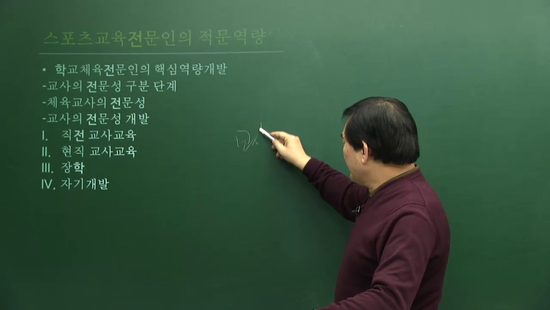 스포츠교육전문인의 적문역량
• 학교체육전문인의 핵심역량개발
-교사의 전문성 구분 단계
-체육교사의 전문성
-교사의 전문성 개발
I. 직전 교사교육
II. 현직 교사교육
III. 장학
IV. 자기개발